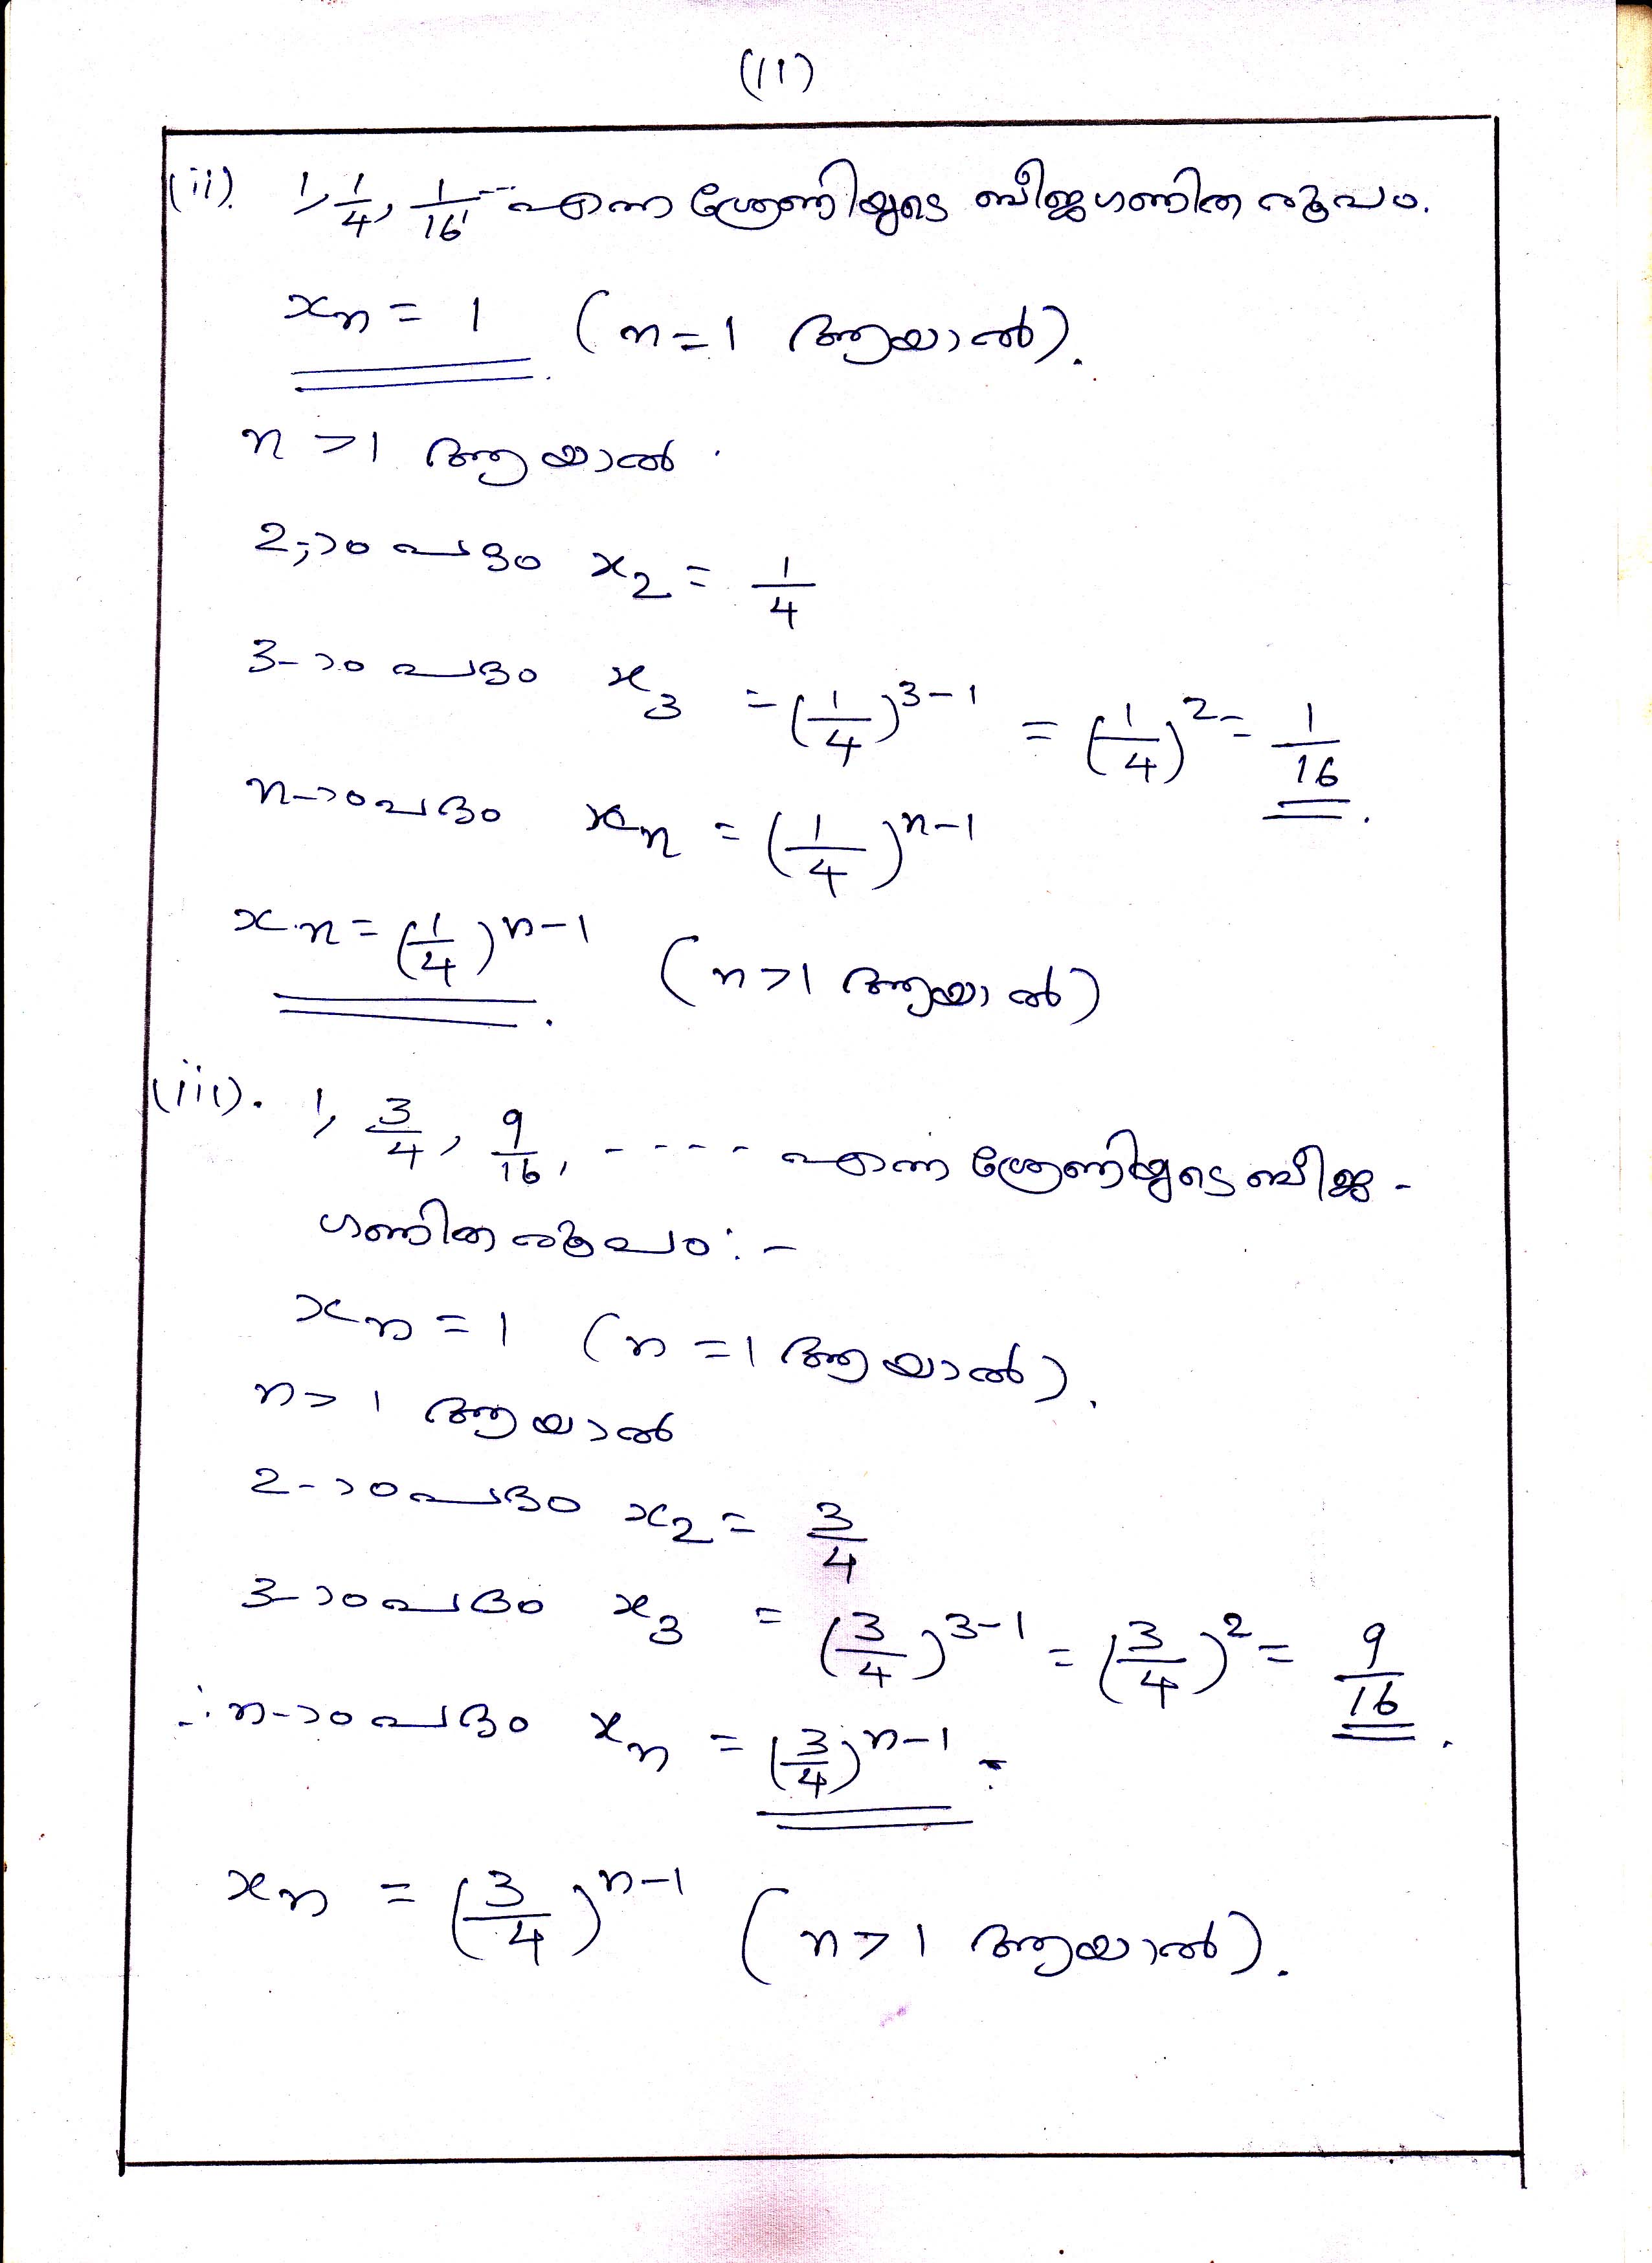 (11)
(ii). 1, 1/4, 1/16, ... എന്ന ശ്രേണിയുടെ ബീജഗണിത രൂപം.
xn = 1 (n=1 ആയാൽ).
n >1 ആയാൽ.
2-ാം പദം x2 = 1/4
3-ാം പദം x3 = (1/4)^3-1 = (1/4)^2 = 1/16.
n-ാം പദം xn = (1/4)^n-1
xn = (1/4)^n-1. (n>1 ആയാൽ)
(iii). 1, 3/4, 9/16, - - - - എന്ന ശ്രേണിയുടെ ബീജ-
ഗണിത രൂപം :-
xn = 1 (n =1 ആയാൽ).
n> 1 ആയാൽ
2-ാം പദം x2 = 3/4
3-ാം പദം x3 = (3/4)^3-1 = (3/4)^2 = 9/16.
∴ n-ാം പദം xn = (3/4)^n-1.
xn = (3/4)^n-1 (n>1 ആയാൽ).